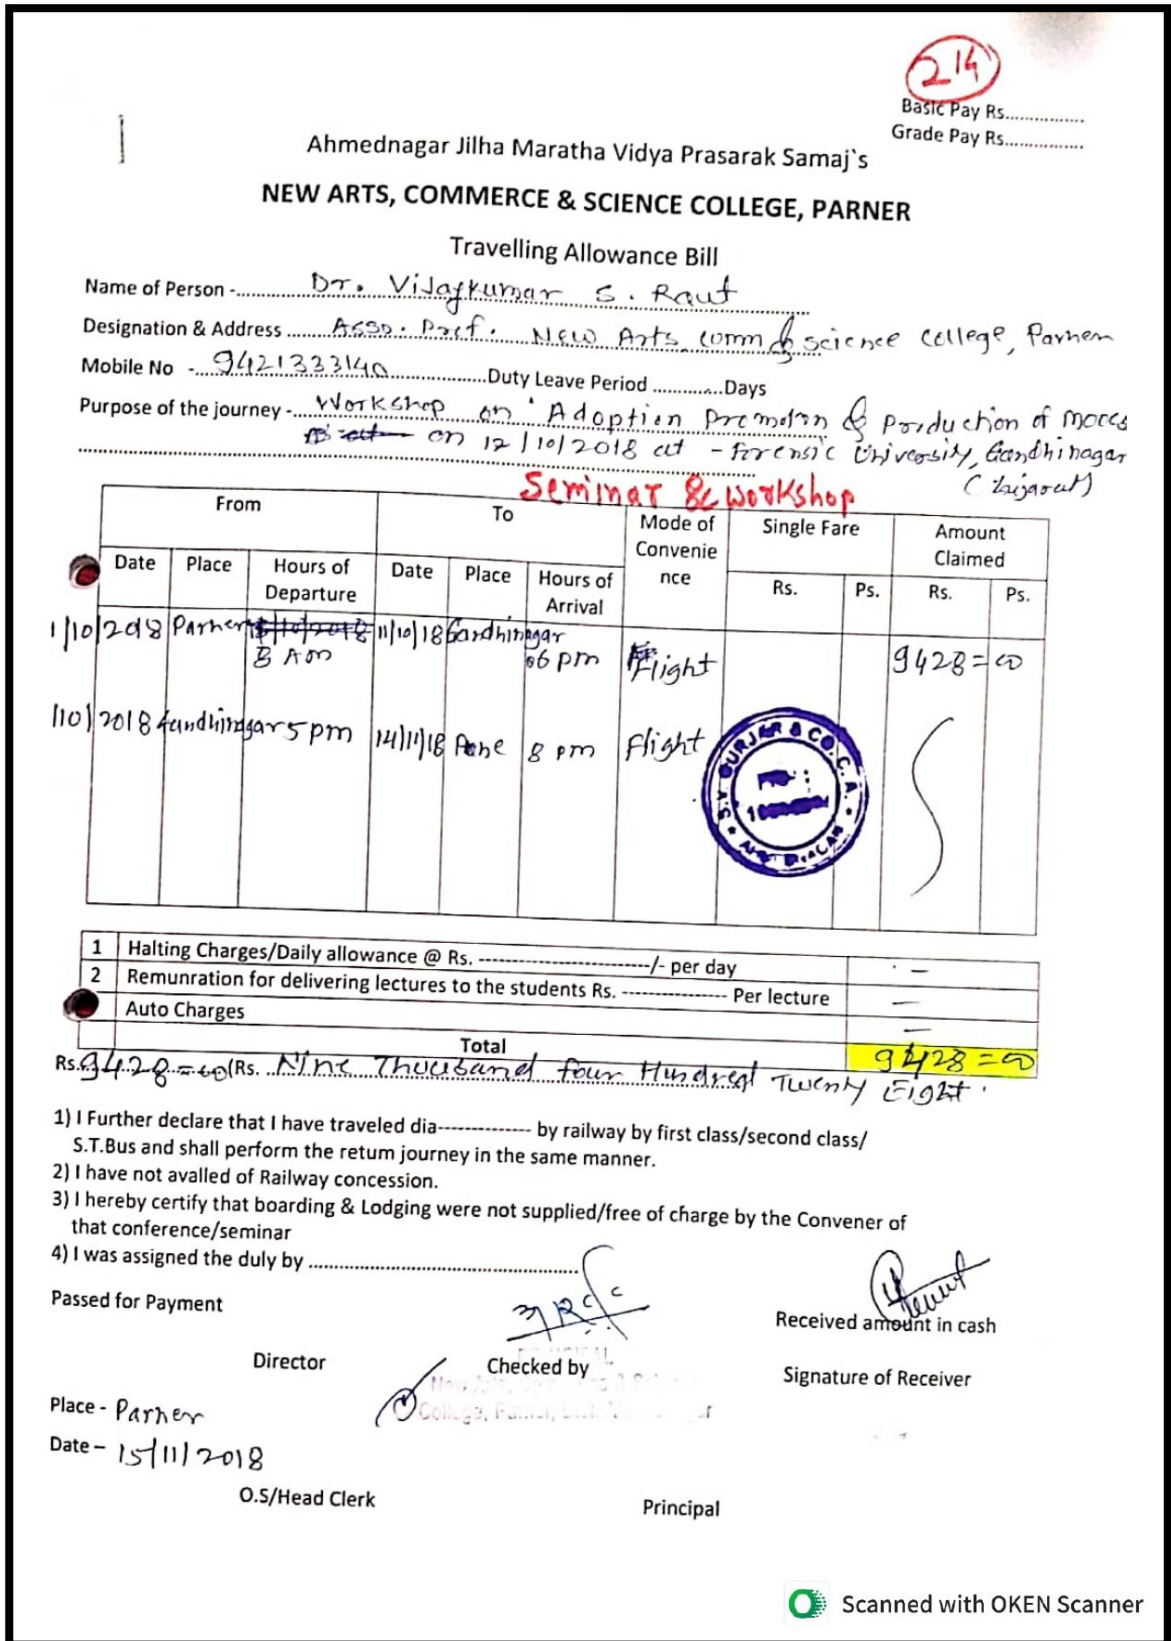 214
Basic Pay Rs...............
Grade Pay Rs...............
Ahmednagar Jilha Maratha Vidya Prasarak Samaj`s
NEW ARTS, COMMERCE & SCIENCE COLLEGE, PARNER
Travelling Allowance Bill
Name of Person -.......... Dr. Vijaykumar S. Raut
Designation & Address ....... Asso. Prof. New Arts comm & science college, Parner
Mobile No -... 9421333140 ...............Duty Leave Period ............Days
Purpose of the journey -... Workshop on 'Adoption Promotion & Production of moocs
on 12/10/2018 at - Forensic University, Gandhinagar
Seminar & Workshop
From To Mode of Convenie nce Single Fare Amount Claimed
Date Place Hours of Departure Date Place Hours of Arrival Rs. Ps. Rs. Ps.
1/10/2018 Parner 11/10/18 Gandhinagar
8 Am 06 pm Flight 9428=00
/10/2018 Gandhinagar 5 pm 14/11/18 Pune 8 pm Flight
S.V. GURJER & CO. C.A.
1 Halting Charges/Daily allowance @ Rs. --------------------------/- per day -
2 Remunration for delivering lectures to the students Rs. ---------------- Per lecture -
Auto Charges -
Total 9428=00
Rs. 9428=00 (Rs. Nine Thousand four Hundred Twenty Eight.
1) I Further declare that I have traveled dia-------------- by railway by first class/second class/
S.T.Bus and shall perform the retum journey in the same manner.
2) I have not avalled of Railway concession.
3) I hereby certify that boarding & Lodging were not supplied/free of charge by the Convener of
that conference/seminar
4) I was assigned the duly by ................................................
Passed for Payment
Received amount in cash
Director
Checked by
Signature of Receiver
Place - Parner
College, Parner,
Date – 15/11/2018
O.S/Head Clerk
Principal
Scanned with OKEN Scanner